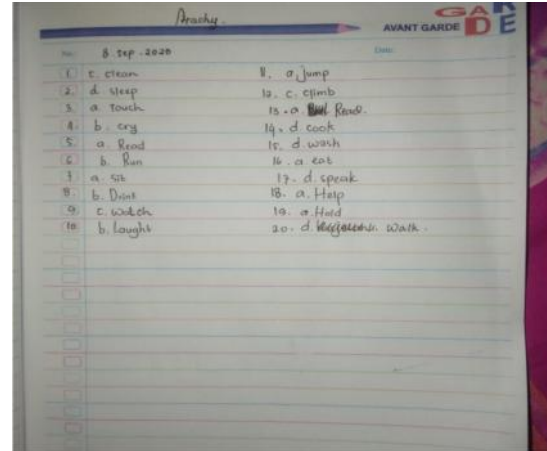 Arachy.
GA R
AVANT GARDE DE
No: 8 Sep - 2020 Date:
1. c. clean
2. d sleep
3. a. Touch
4. b. cry
5. a. Read
6. b. Run
7 a. Sit
8. b. Drink
9. c. watch
10. b. Laught
11. a. Jump
12. c. climb
13. a. Read.
14. d cook
15. d. wash
16. a eat
17. d. speak
18. a. Help
19. a. Hold
20. d. Walk.